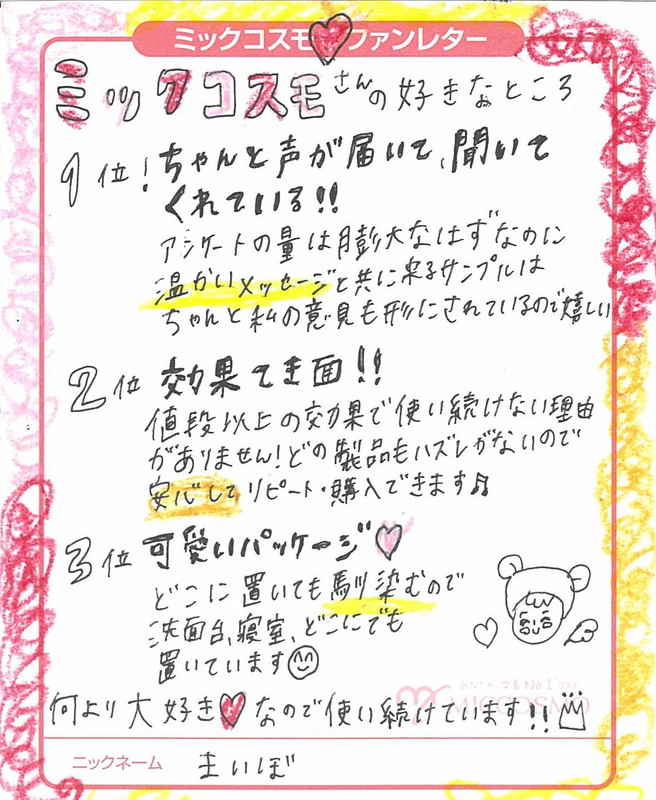 ミックコスモ♥ファンレター
ミックコスモさんの好きなところ
1位!ちゃんと声が届いて、聞いて
くれている!!
アンケートの量は膨大なはずなのに
温かいメッセージと共に来るサンプルは
ちゃんと私の意見も形にされているので嬉しい
2位 効果てき面!!
値段以上の効果で使い続けない理由
がありません!どの製品もハズレがないので
安心してリピート・購入できます♫
3位 可愛いパッケージ♡
どこに置いても馴染むので
洗面台、寝室、どこにでも
置いています
あなたの
No.1
MICCOSMO
何より大好き♥なので使い続けています!!
ニックネーム まいぼ